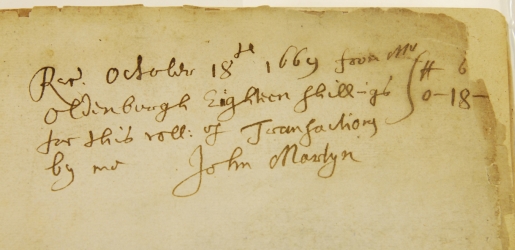 Rec. October 18th 1669 from Mr
Oldenburgh Eighteen shillings
for this voll: of Transactions
by me John Martyn
ƚƚ s
0-18-